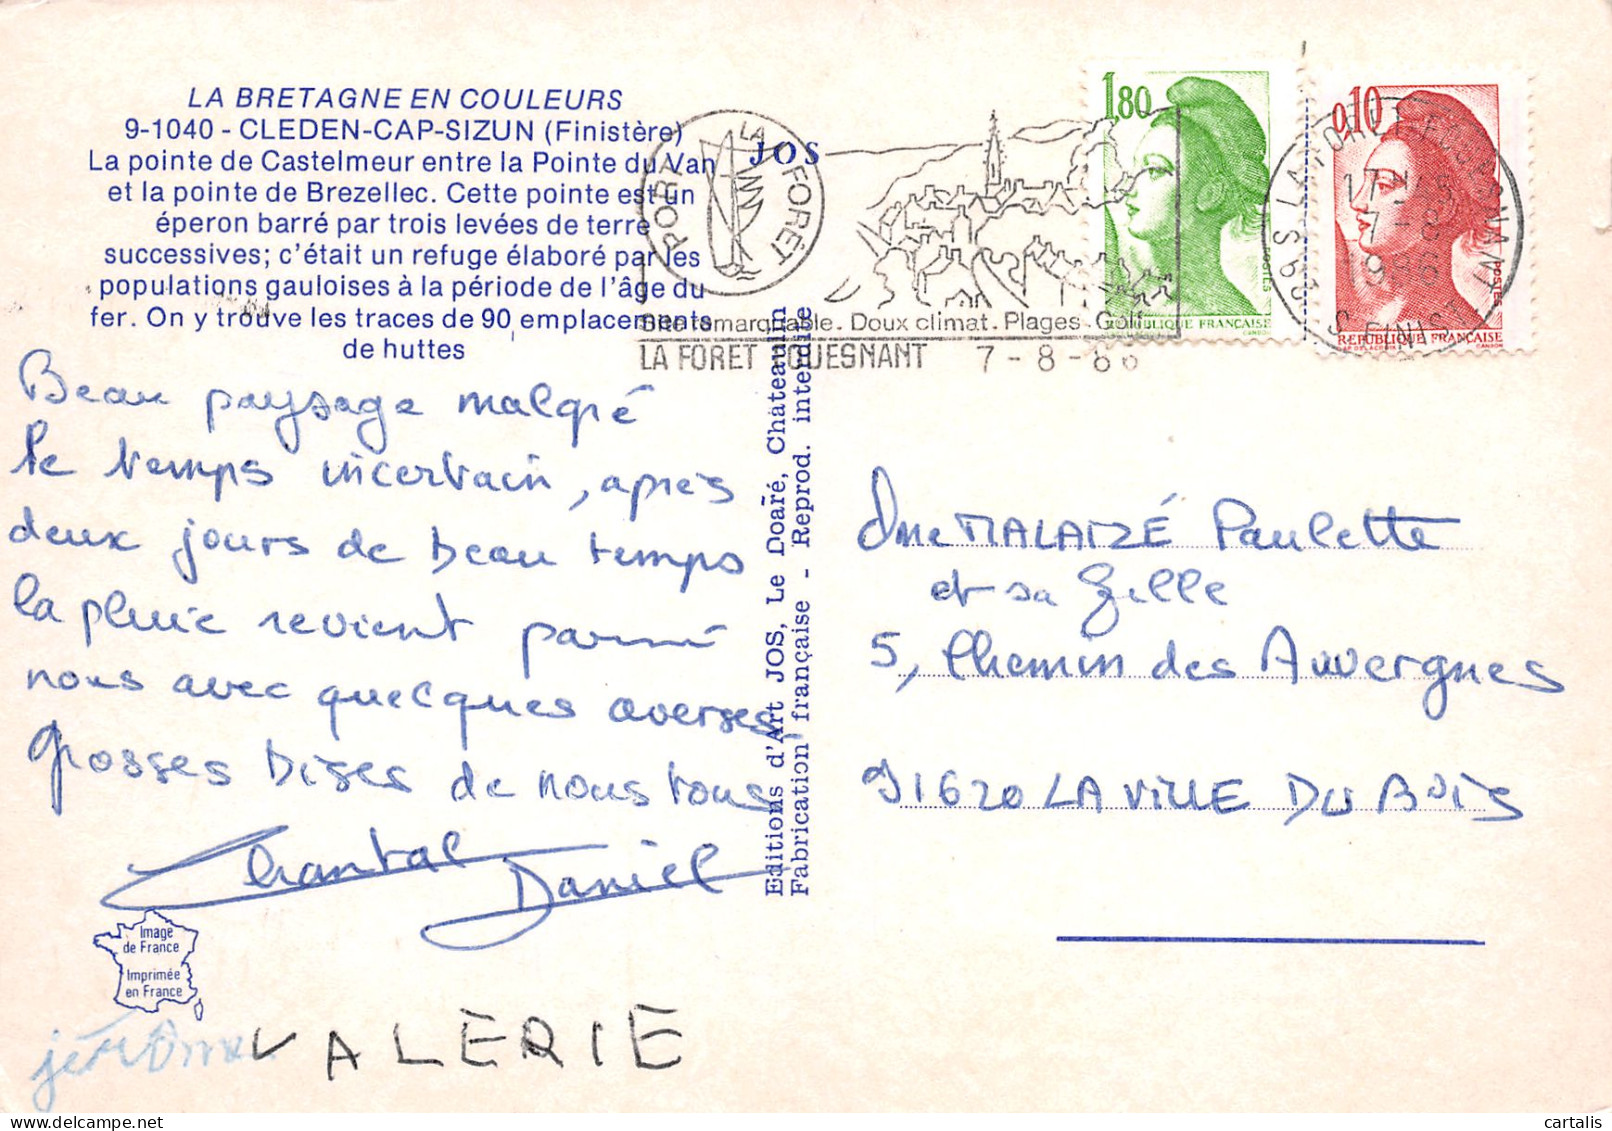 LA BRETAGNE EN COULEURS
9-1040 - CLEDEN-CAP-SIZUN (Finistère)
La pointe de Castelmeur entre la Pointe du Van
et la pointe de Brezellec. Cette pointe est un
éperon barré par trois levées de terre
successives; c'était un refuge élaboré par les
populations gauloises à la période de l'âge du
fer. On y trouve les traces de 90 emplacements
de huttes
Beau paysage malgré
le temps incertain, après
deux jours de beau temps
la pluie revient parmi
nous avec quelques averses.
Grosses bises de nous tous
Chantal
Daniel
Image
de France
Imprimée
en France
jérôme
VALERIE
JOS
Editions d'Art JOS, Le Doaré, Châteaulin
Fabrication française - Reprod. interdite
PORT LA FORÊT
Site remarquable. Doux climat. Plages. Golf
LA FORET FOUESNANT 7-8-86
1,80
REPUBLIQUE FRANÇAISE
POSTES
0,10
REPUBLIQUE FRANÇAISE
POSTES
29 S LA FORET-FOUESNANT
17H45
7-8
1986
S. FINISTERE
Mme MALAIZÉ Paulette
et sa fille
5, Chemin des Auvergnes
91620 LA VILLE DU BOIS
cartalis